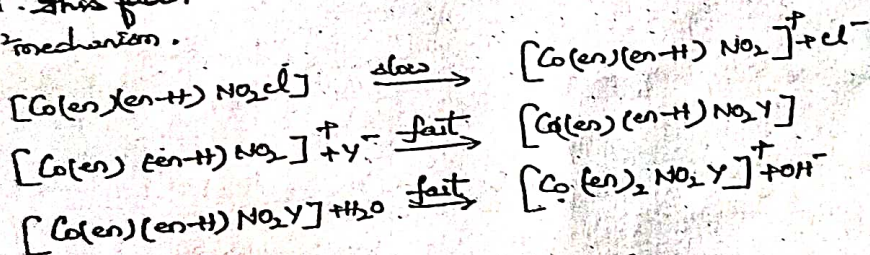 . This
mechanism.
[Co(en)(en-H) NO₂Cl] slow → [Co(en)(en-H) NO₂]⁺ + Cl⁻
[Co(en) (en-H) NO₂]⁺ + Y⁻ fast → [Co(en) (en-H) NO₂Y]
[Co(en)(en-H) NO₂Y] + H₂O fast → [Co (en)₂ NO₂ Y]⁺ + OH⁻